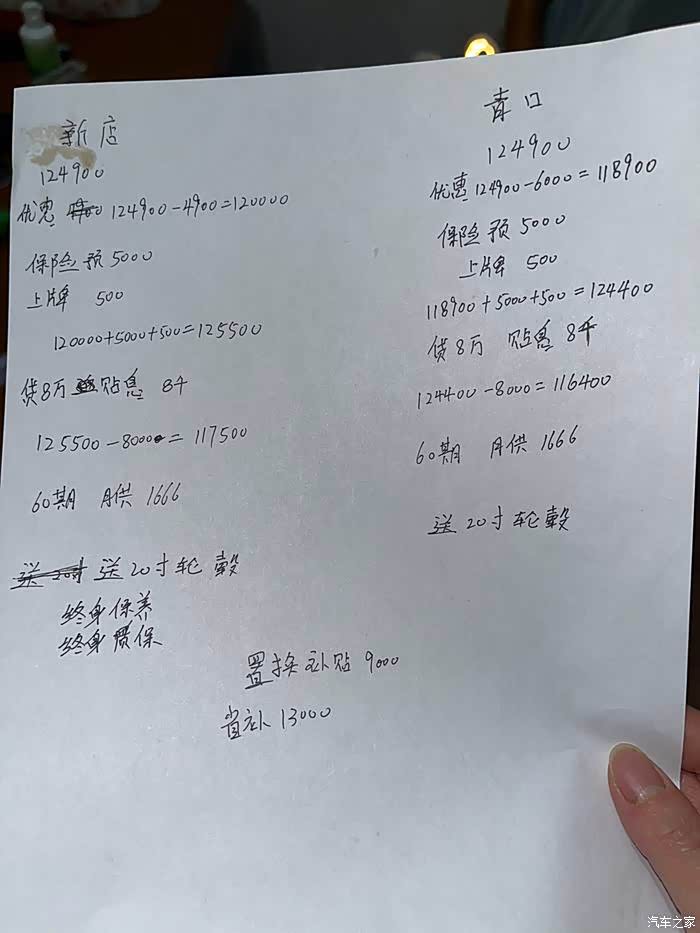 新店
124900
优惠 124900-4900=120000
保险预5000
上牌 500
120000+5000+500=125500
贷8万 贴息 8千
125500-8000= 117500
60期 月供 1666
送20寸轮毂
终身保养
终身质保
青口
124900
优惠 124900-6000=118900
保险预5000
上牌 500
118900+5000+500=124400
贷8万 贴息 8千
124400-8000=116400
60期 月供 1666
送20寸轮毂
置换补贴 9000
省补 13000
汽车之家